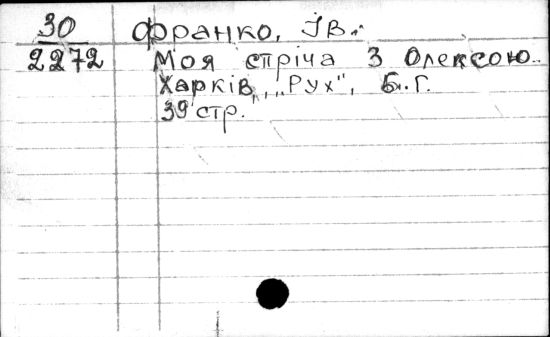 30
2272
Франко, Ів.
Моя стріча з Олексою..
Харків, "Рух", Б. Г.
39 стр.